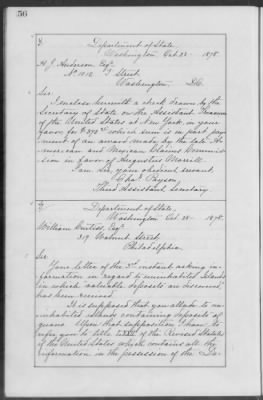 56
Department of State,
Washington, Oct. 23 – 1878.
H. J. Anderson Esqr.
No. 1012 I Street
Washington, D.C.
Sir:
I enclose herewith a check drawn by the
Secretary of State on the Assistant Treasurer
of the United States at New York, in your
favor for $ which sum is in part pay-
ment of an award made by the late A-
merican and Mexican Claims Commis-
sion in favor of Augustus Morrill.
I am, Sir, your obedient servant,
Chas. Payson,
Third Assistant Secretary.
Department of State,
Washington Oct. 1878.
William Esqr.
319 Walnut Street
Philadelphia
Sir
Your letter of the instant asking in-
formation in regard to uninhabited Islands
in which valuable deposits are discovered,
has been received.
It is supposed that you allude to un-
inhabited islands containing deposits of
guano. Upon that supposition I have to
refer you to title of the Revised Statutes
of the United States which contains all the
information in the possession of the De-